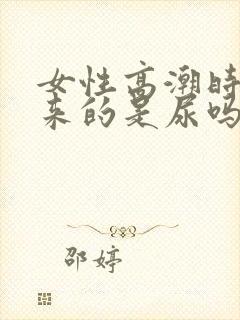 女性高潮时
来的是尿吗
邵婷